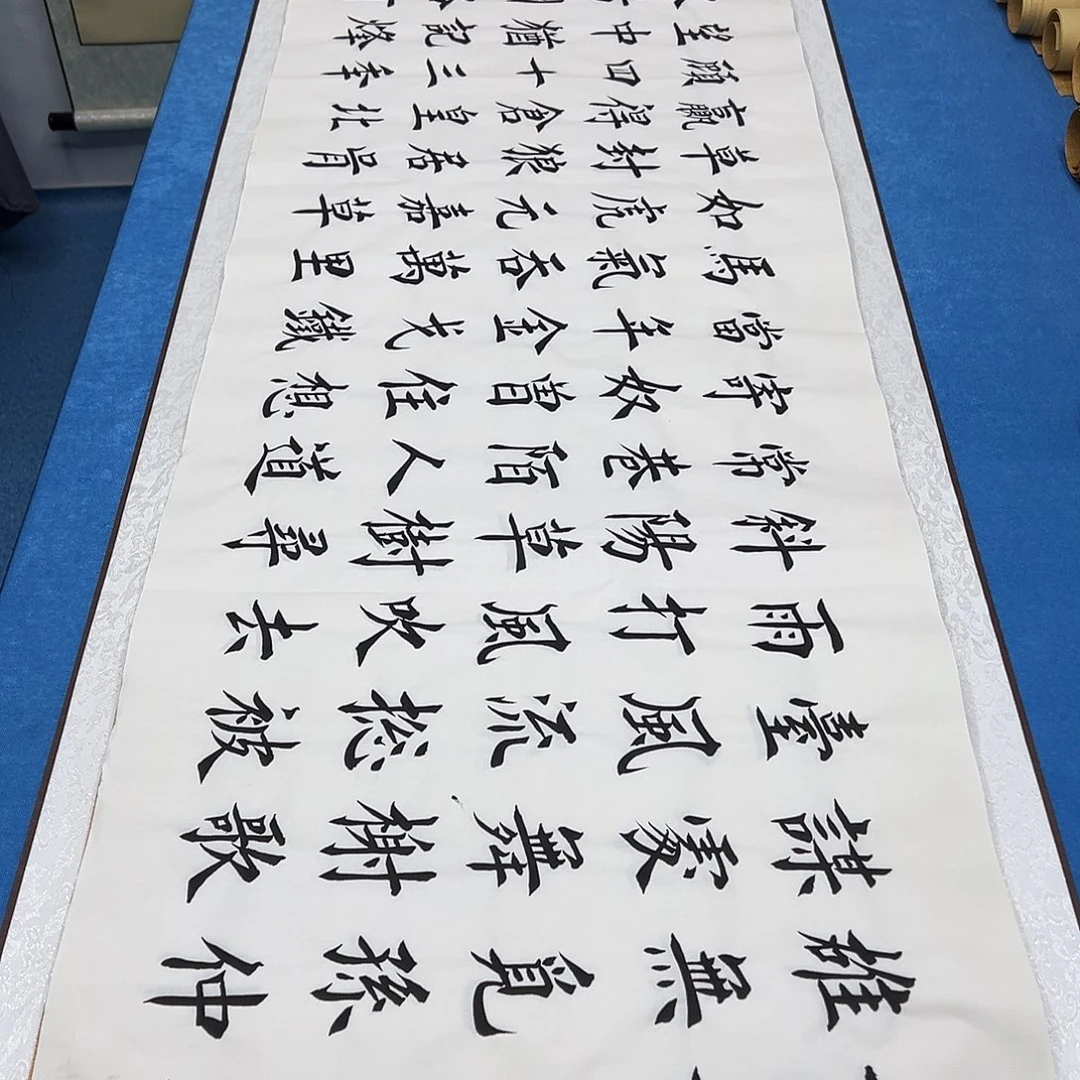 雄無覓孫仲
謀處舞榭歌
臺風流總被
雨打風吹去
斜陽草樹尋
常巷陌人道
寄奴曾住想
當年金戈鐵
馬氣吞萬里
如虎元嘉草
草封狼居胥
贏得倉皇北
顧四十三年
望中猶記烽